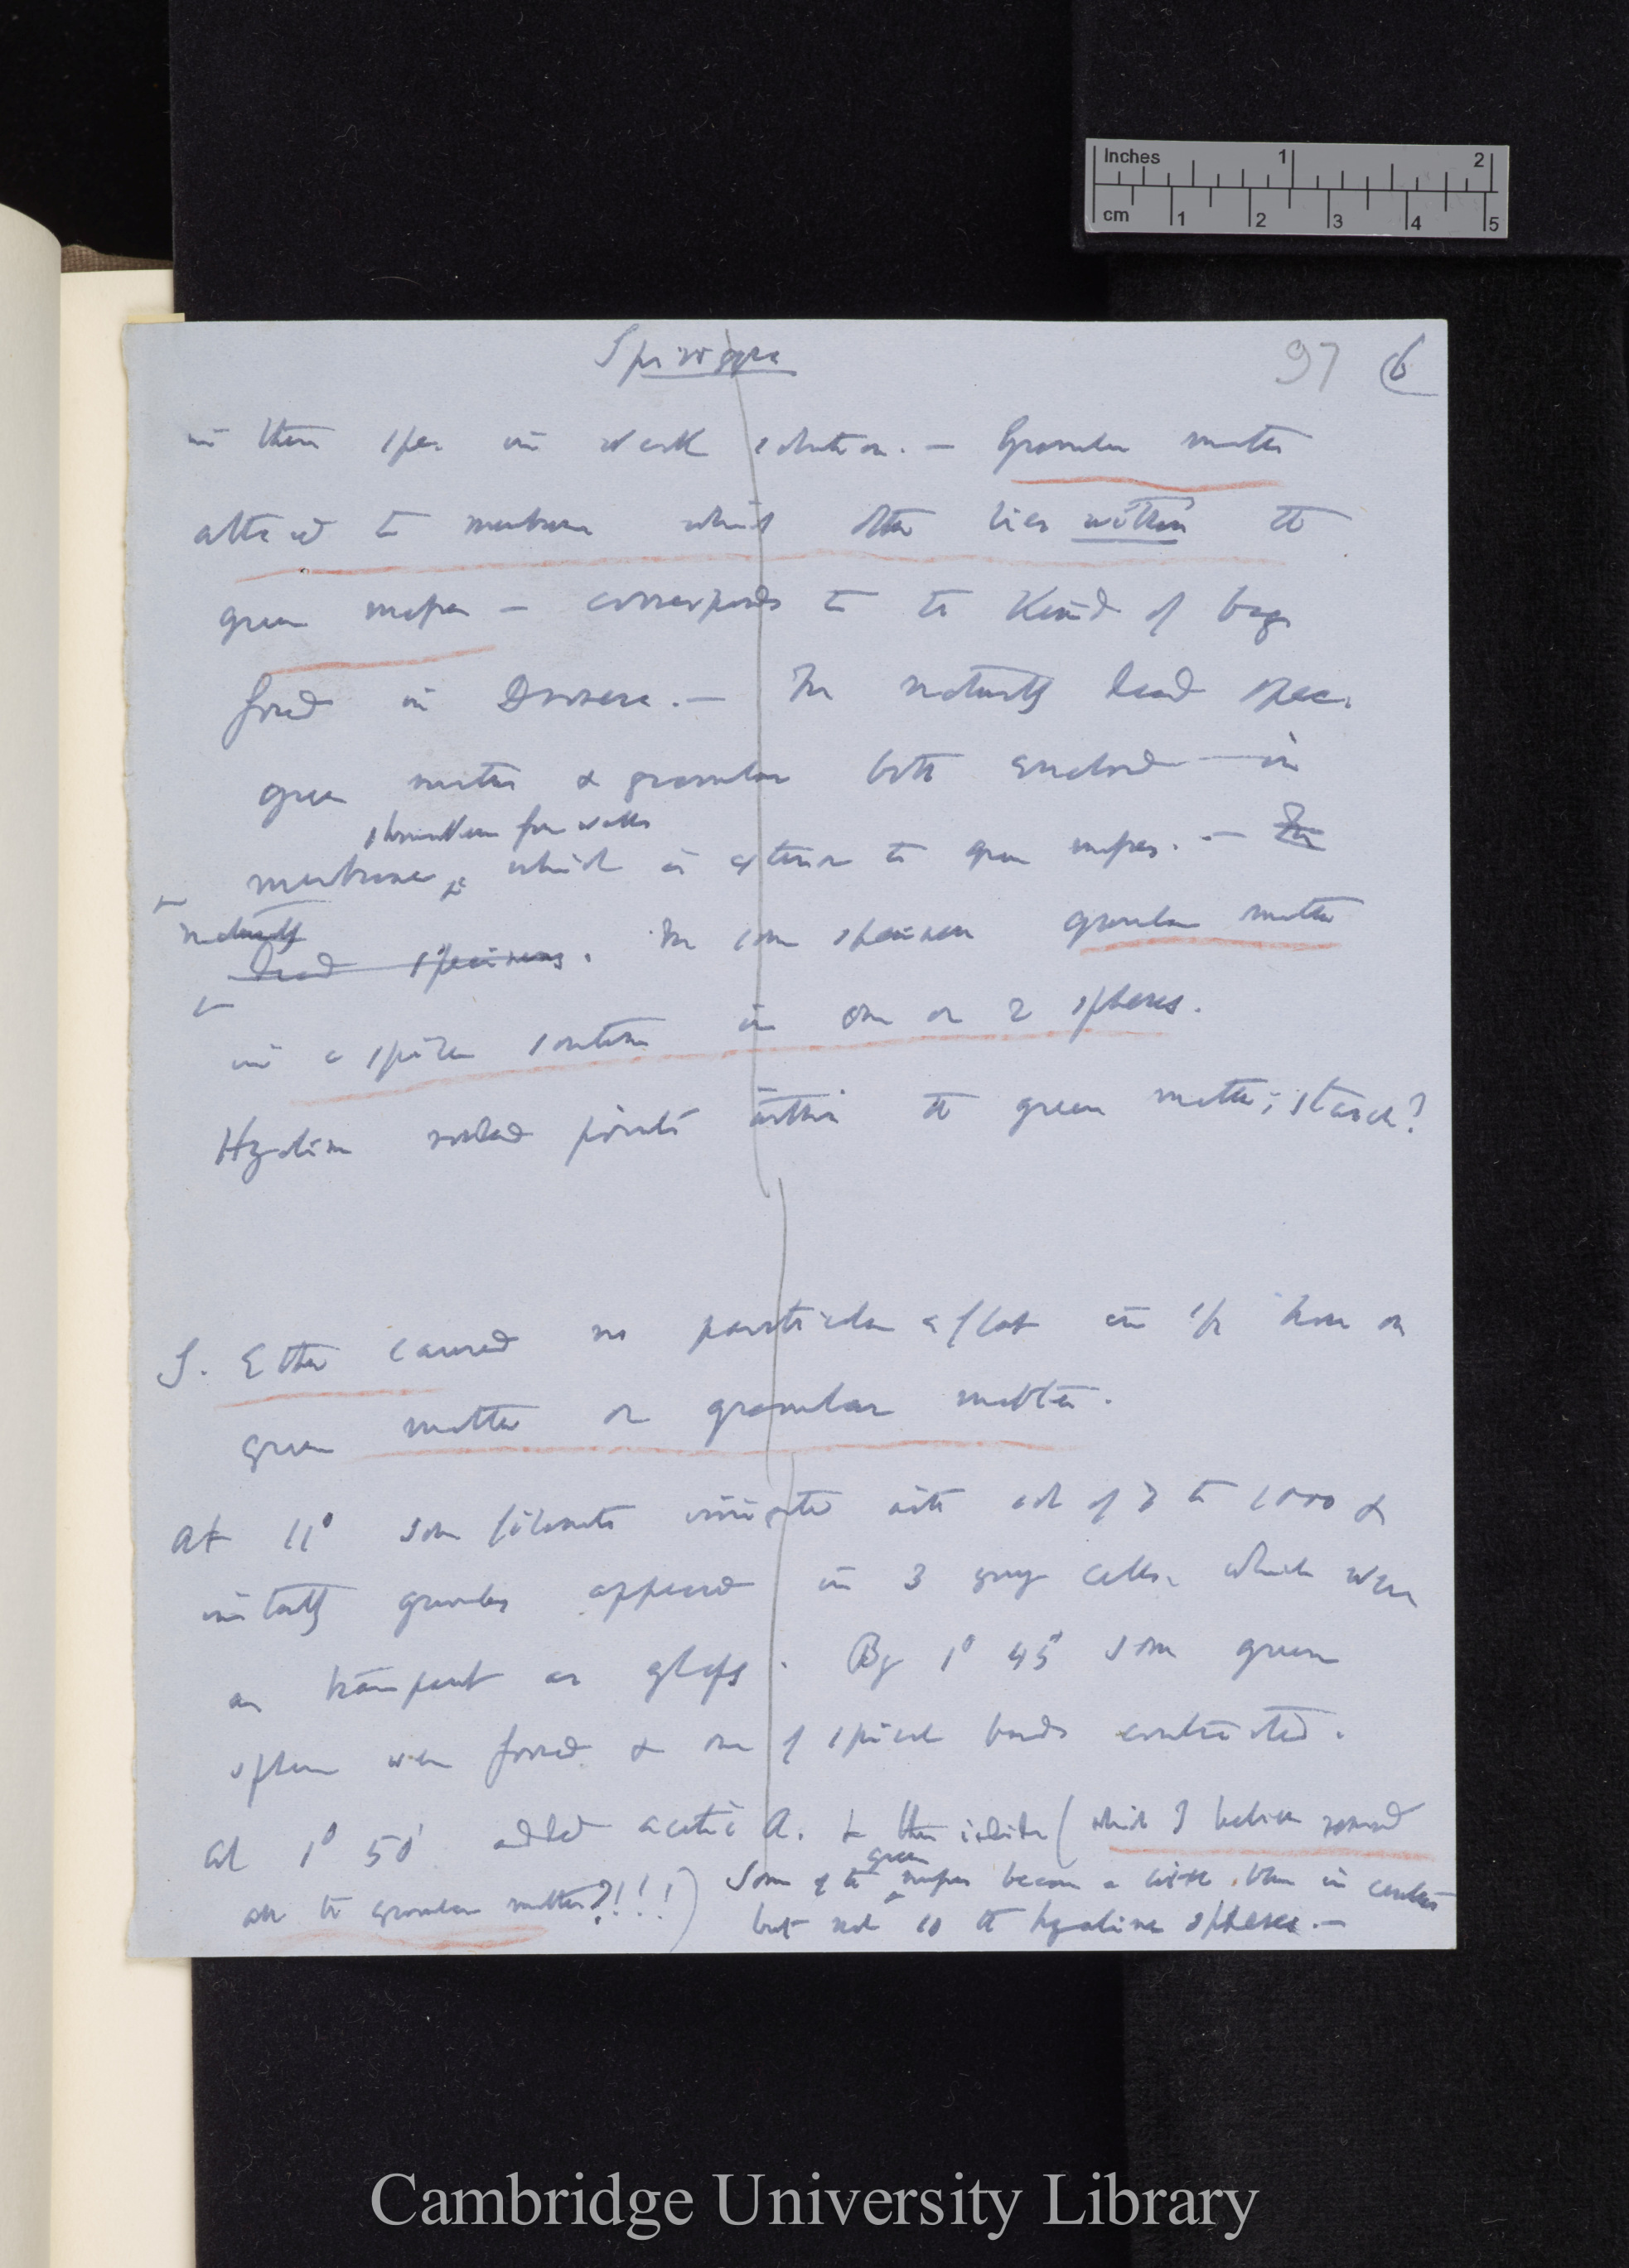 Inches 1 2
cm 1 2 3 4 5
Spirogyra 97 (6
in these spec in weak solution. — Granular matter
attached to membrane which often lies within the
green masses — corresponds to the kind of bags
formed in Drosera. — In naturally dead spec.
green matter & granular both enclosed in
shrunken from walls
membrane, which is exterior to green masses. — In
naturally
dead specimens. In some specimens granular matter
in a spire sometimes in one or 2 spheres.
Hyaline rounded points within the green matter; starch?
S. Ether caused no particular effect in 1/2 hour on
green matter or granular matter.
At 11° some filaments irrigated with sol of 7 to 1000 &
instantly granules appeared in 3 cells, which were
as transparent as glass. By 1° 45' some green
spheres were formed & one of spiral bands contracted.
At 1° 50' added acetic A. to these (which I believe removed
all the granular matter?!!!) Some of the green masses became a little blue in centres
but not so the hyaline spheres. —
Cambridge University Library